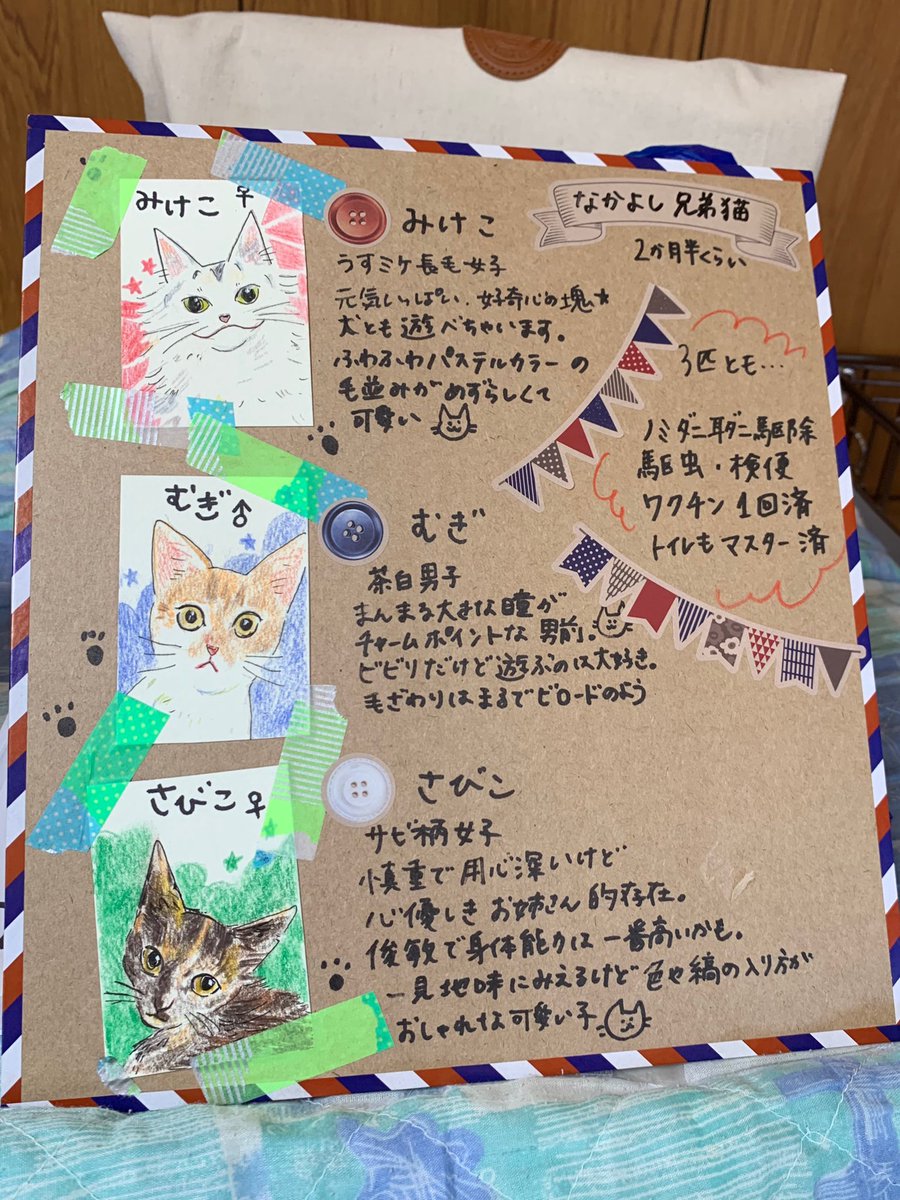 なかよし 兄弟猫
2か月半くらい
みけこ♀
みけこ
うすミケ長毛女子
元気いっぱい、好奇心の塊★
犬とも遊べちゃいます。
ふわふわパステルカラーの
毛並みがめずらしくて
可愛い
3匹とも…
ノミダニ耳ダニ駆除
駆虫・検便
ワクチン1回済
トイレもマスター済
むぎ♂
むぎ
茶白男子
まんまる大きな瞳が
チャームポイントな男前。
ビビリだけど遊ぶのは大好き。
毛ざわりはまるでビロードのよう
さびこ♀
さびこ
サビ柄女子
慎重で用心深いけど
心優しきお姉さん的存在。
俊敏で身体能力は一番高いかも。
一見地味にみえるけど色や縞の入り方が
おしゃれな可愛い子